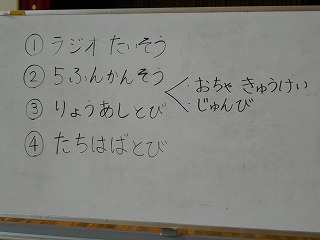 ① ラジオ たいそう
② 5ふんかんそう
・おちゃ きゅうけい
・じゅんび
③ りょうあしとび
④ たちはばとび